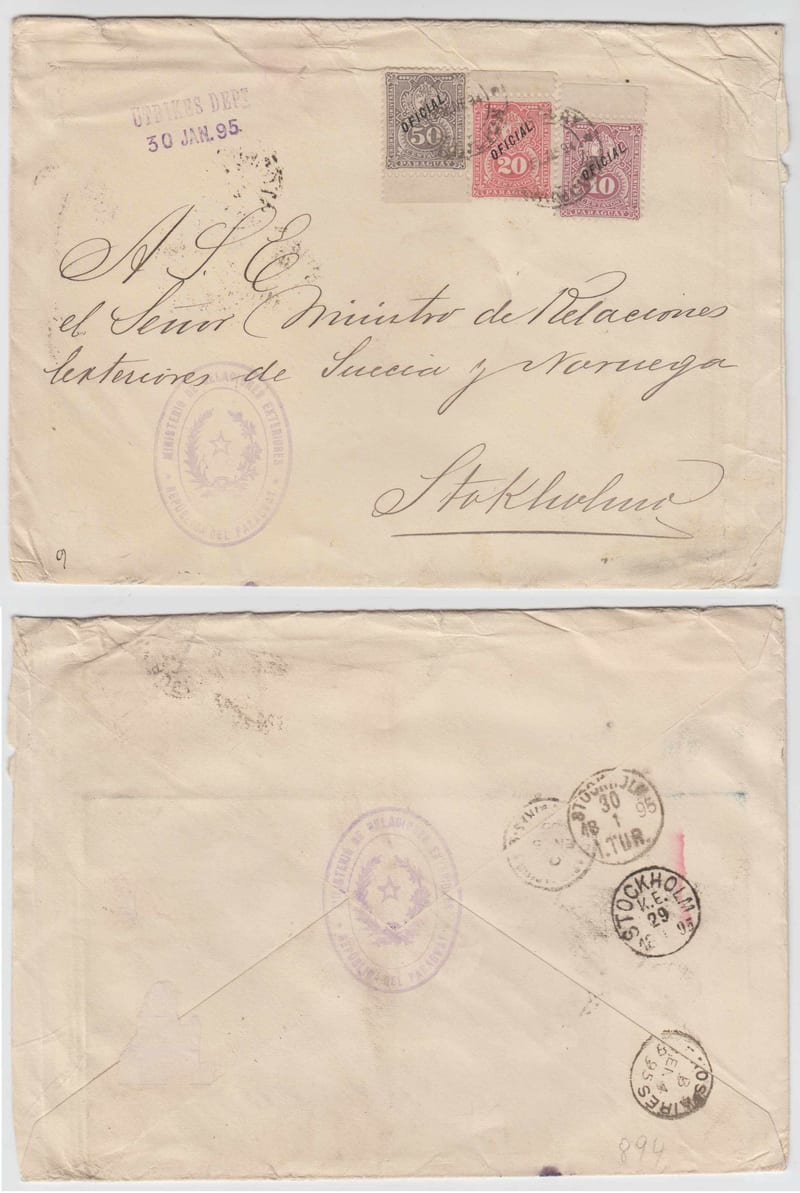 UTRIKES DEPT
30 JAN. 95.
OFICIAL
50
PARAGUAY
OFICIAL
20
CENTAVOS
OFICIAL
10
CENTAVOS
PARAGUAY
A S. E
el Señor Ministro de Relaciones
Exteriores de Suecia y Noruega
Stokholmo
MINISTERIO DE RELACIONES EXTERIORES
REPUBLICA DEL PARAGUAY
9
STOCKHOLM
30
18 1 95
1.TUR.
MINISTERIO DE RELACIONES
REPUBLICA DEL PARAGUAY
STOCKHOLM
K.E.
29
18 1 95
OS AIRES
8
EN
95
894